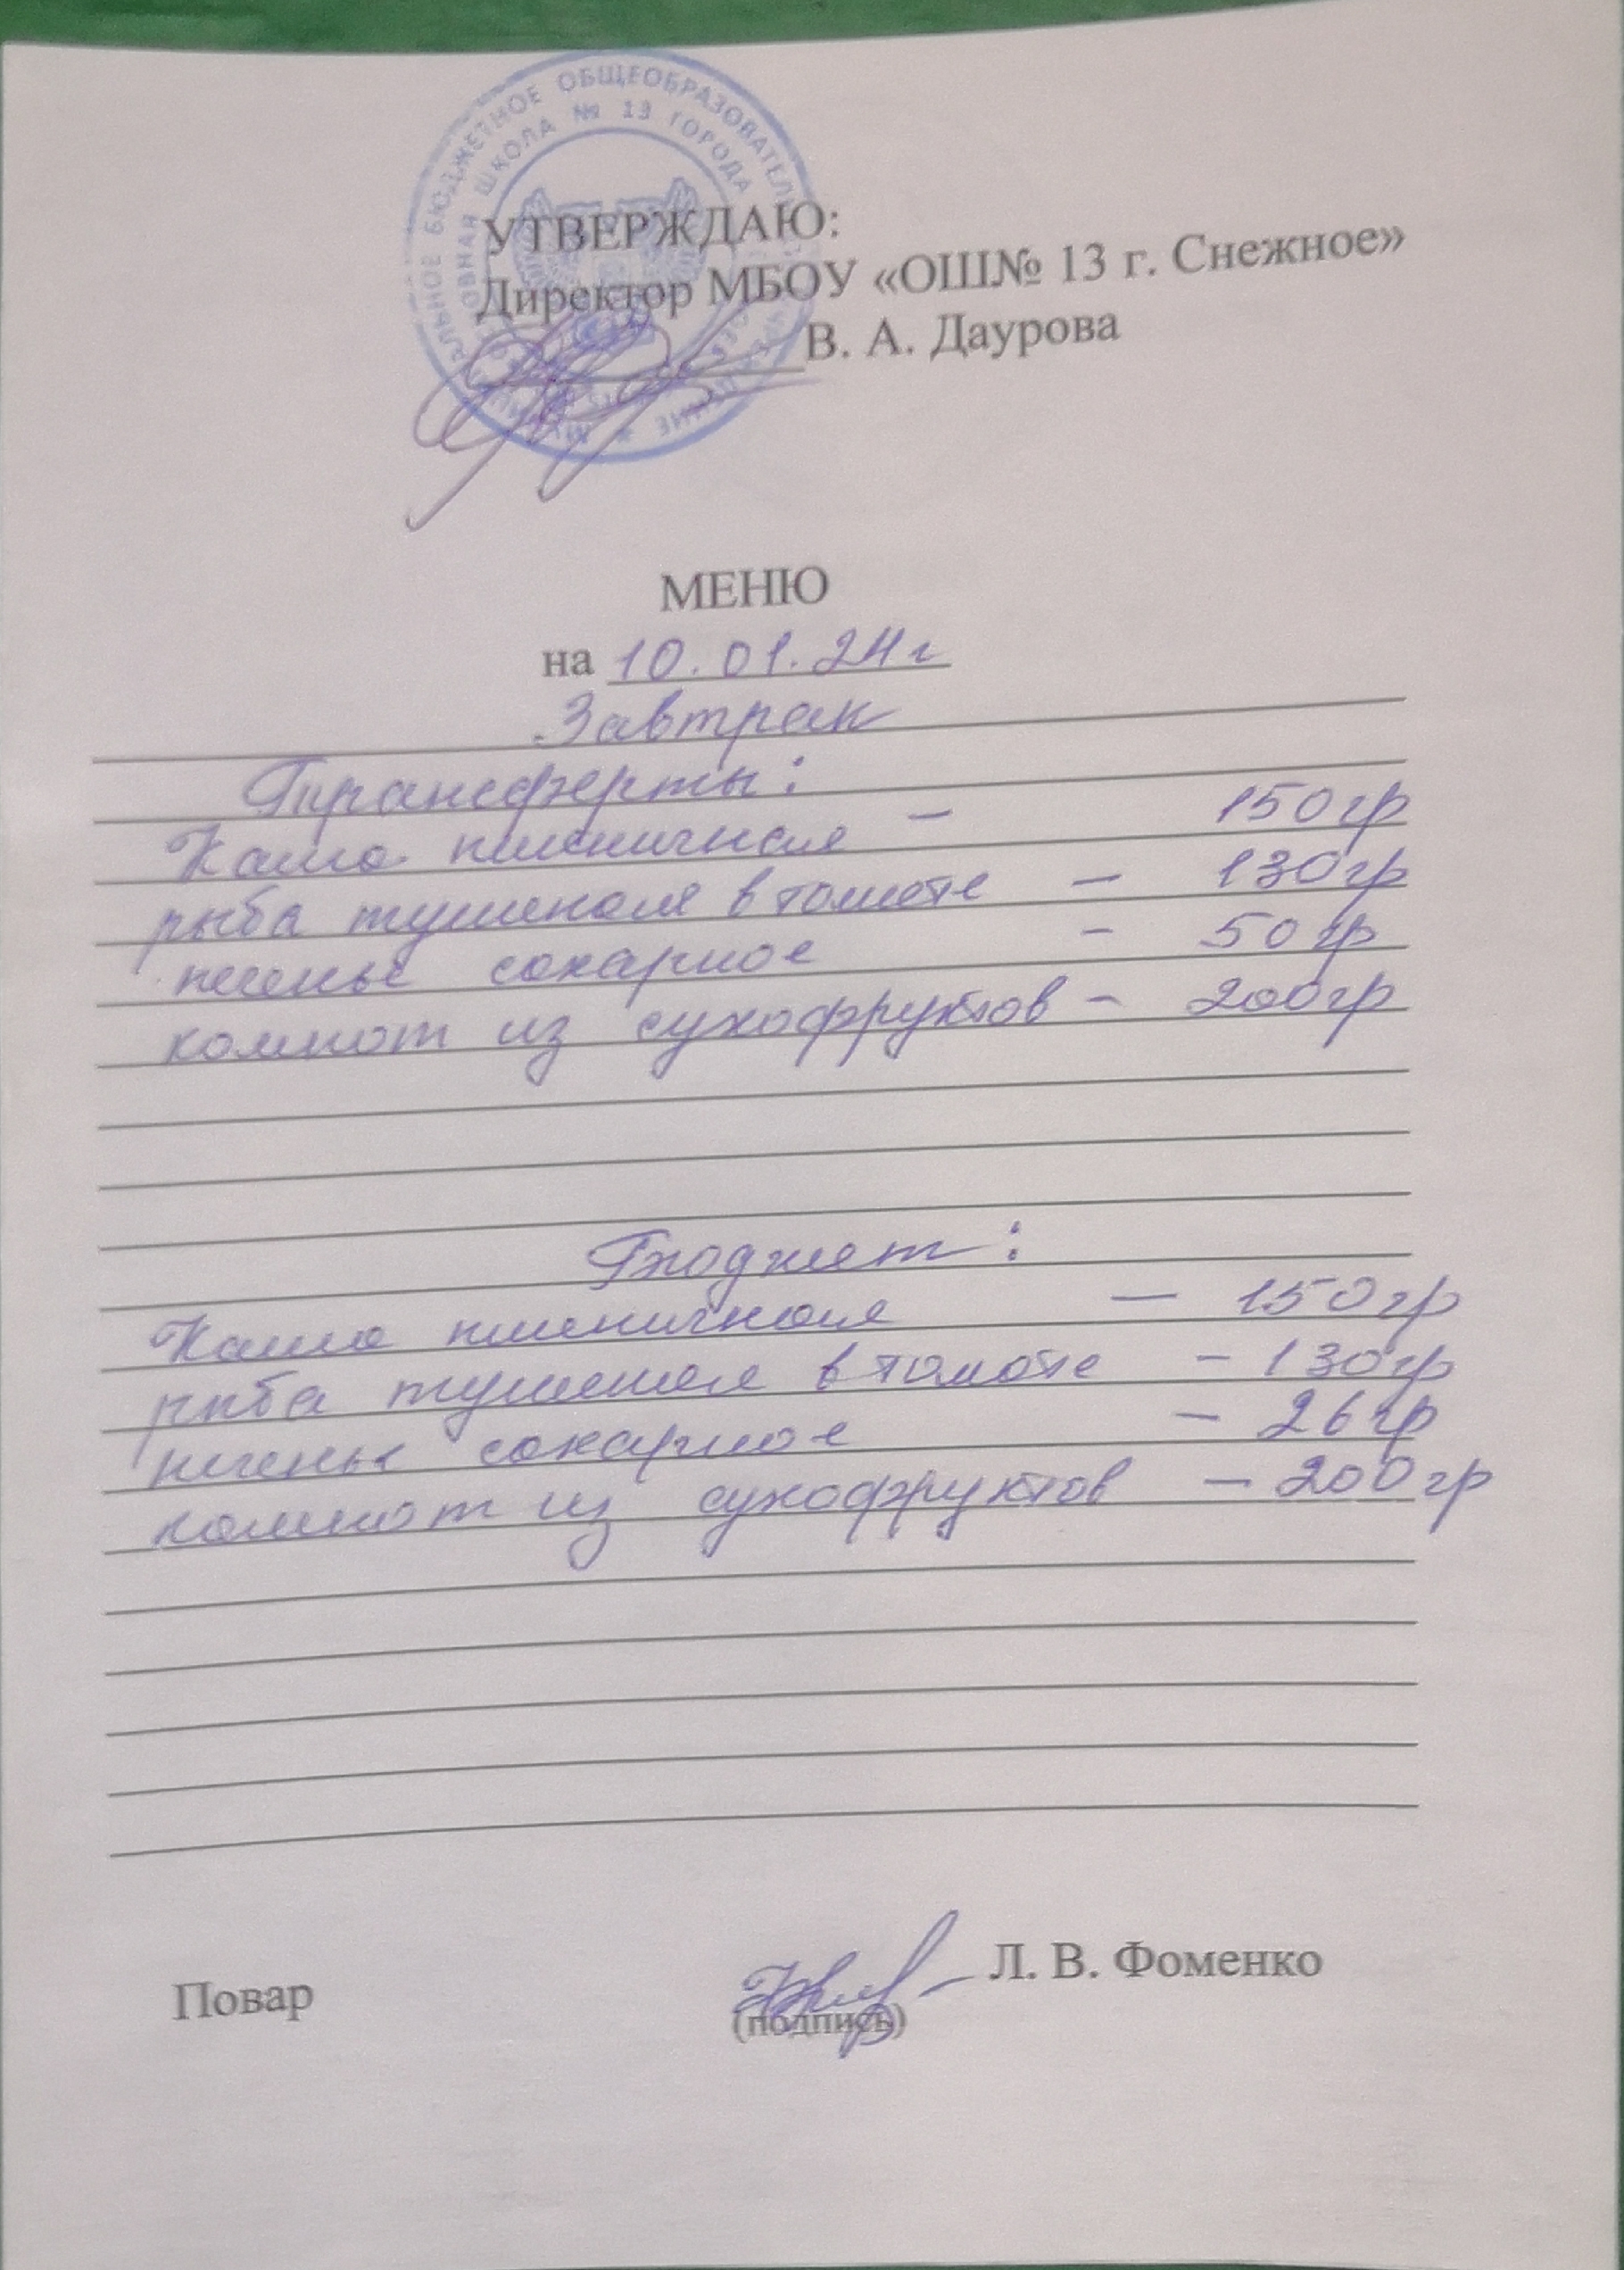 УТВЕРЖДАЮ:
Директор МБОУ «ОШ№ 13 г. Снежное»
В. А. Даурова
БЮДЖЕТНОЕ ОБЩЕОБРАЗОВАТЕЛЬ
ШКОЛА № 13 ГОРОДА
МЕНЮ
на 10.01.24г
Завтрак
Трансферты:
Каша пшеничная - 150гр
рыба тушеная в томате - 130гр
печенье сахарное - 50гр
компот из сухофруктов - 200гр
Бюджет:
Каша пшеничная - 150гр
рыба тушеная в томате - 130гр
печенье сахарное - 26гр
компот из сухофруктов - 200гр
Повар Л. В. Фоменко
(подпись)